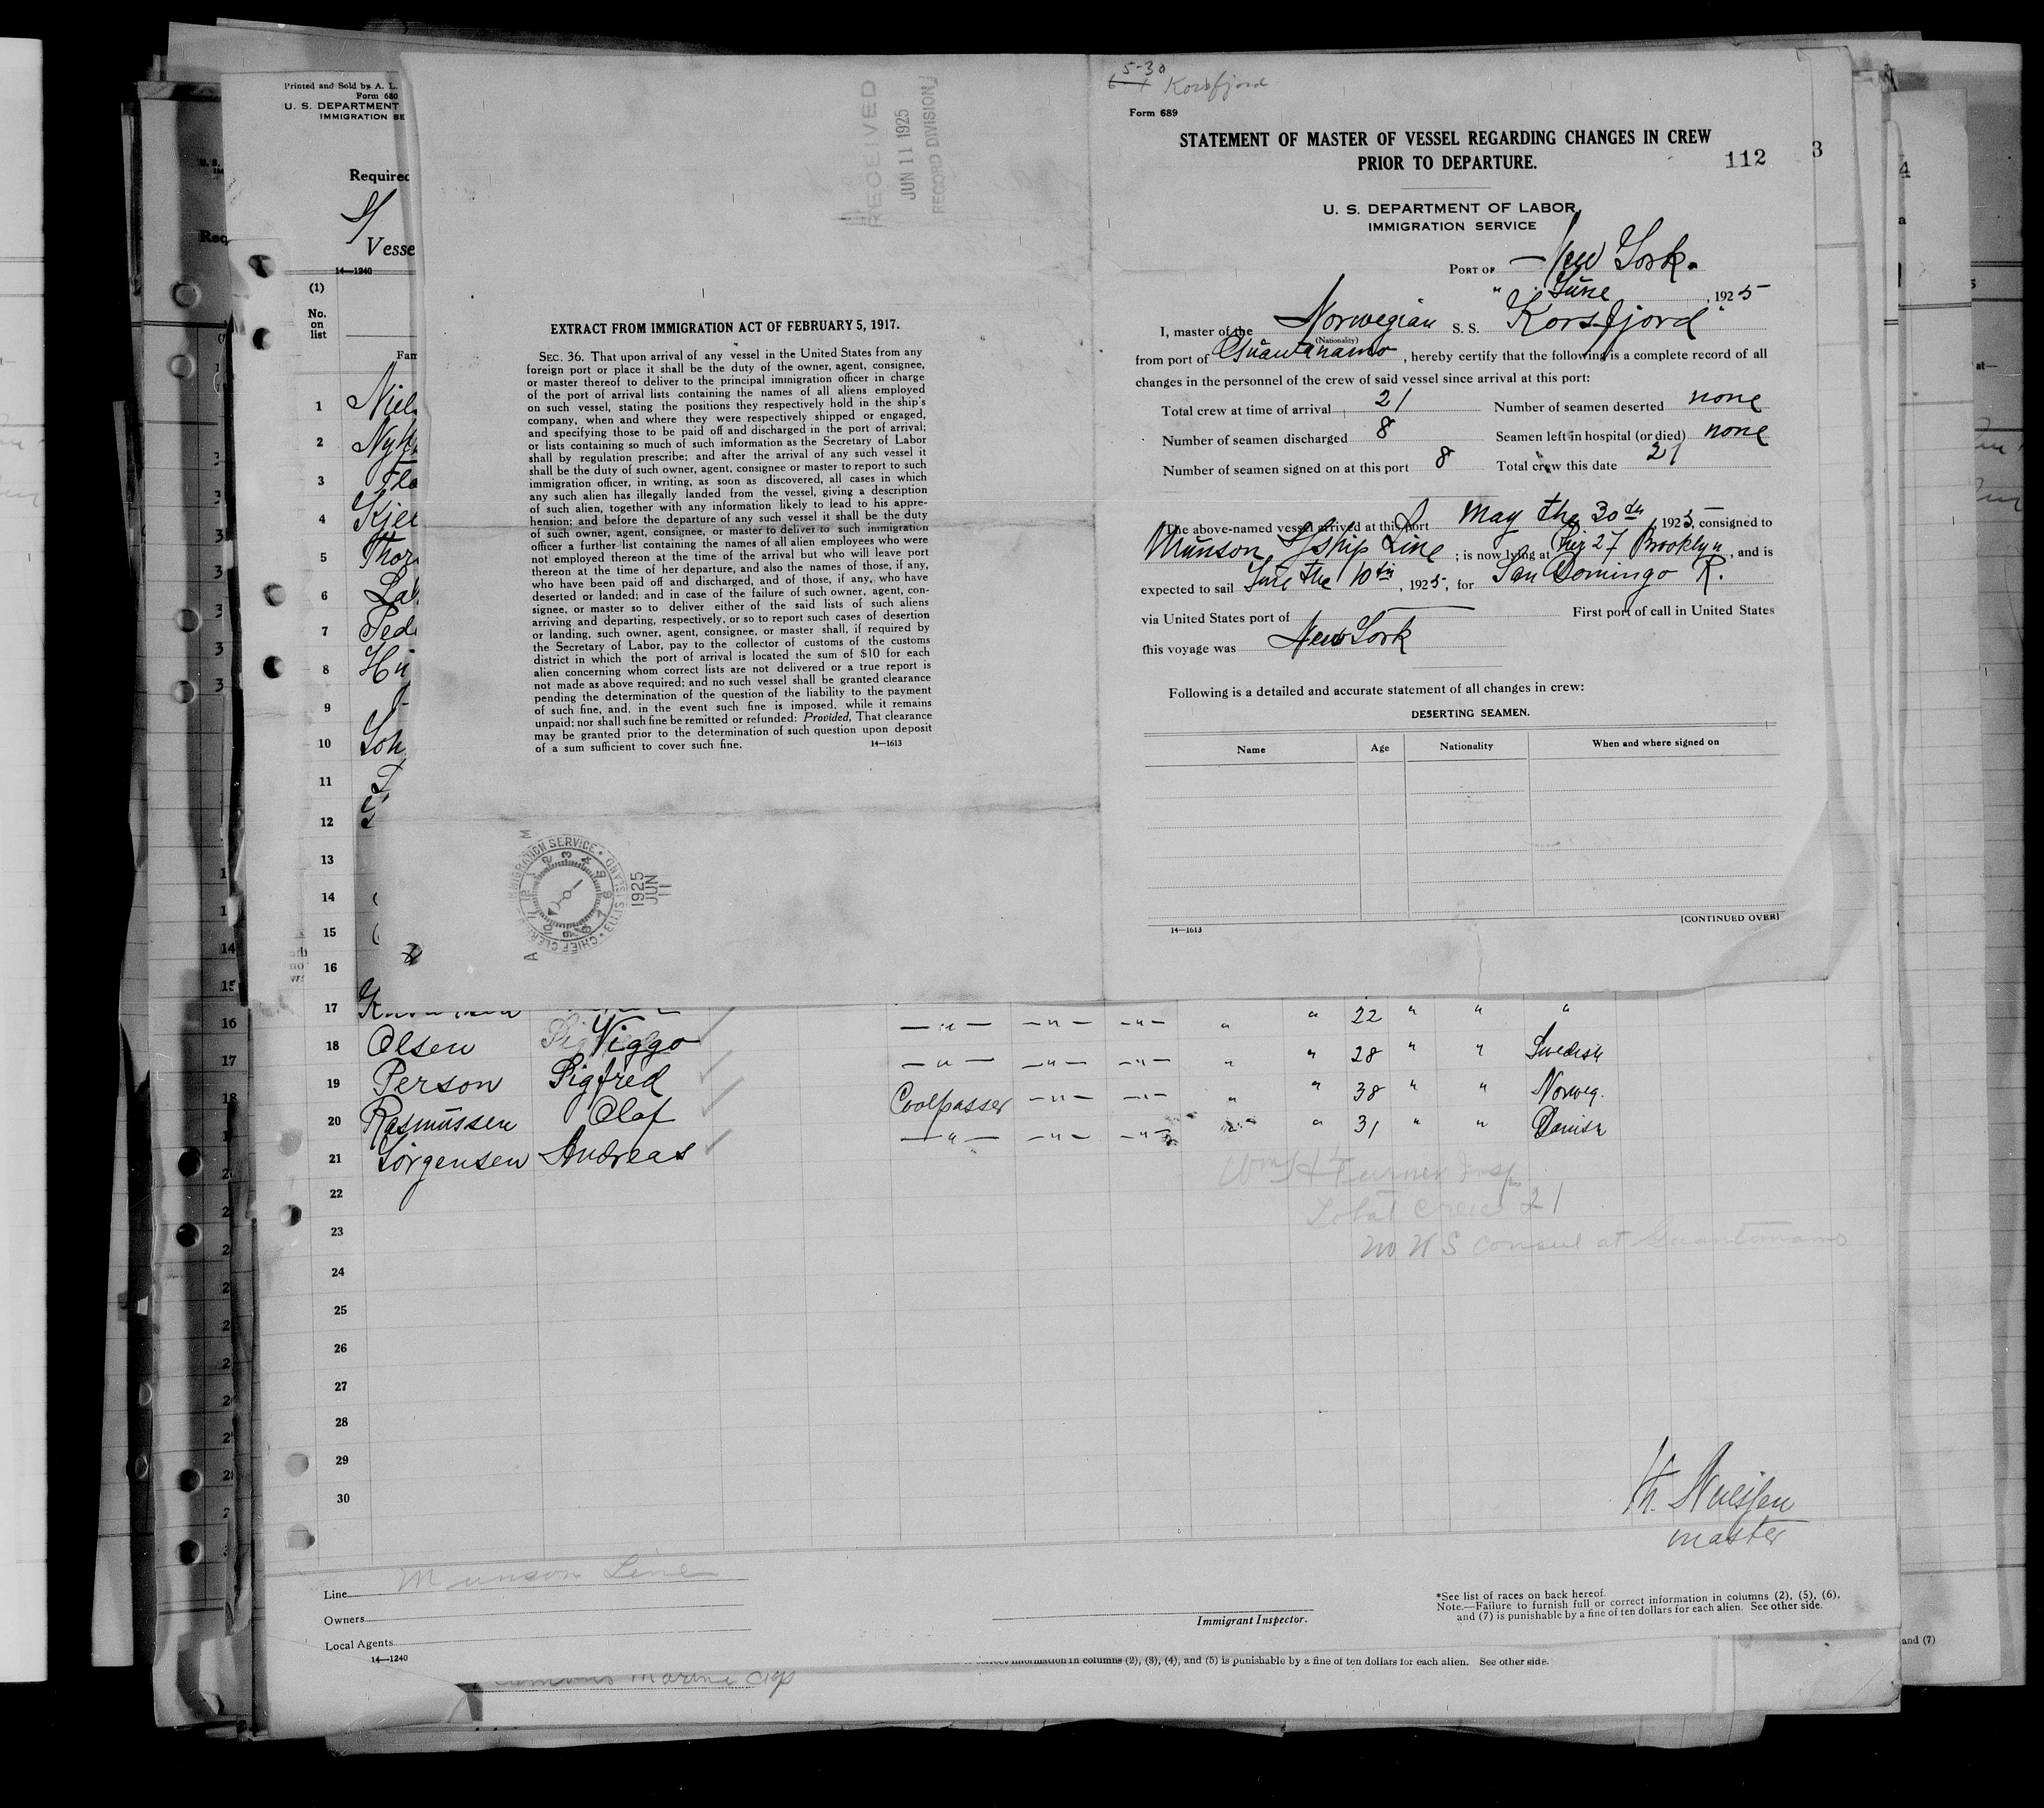 Printed and Sold by A. L.
Form 680
U. S. DEPARTMENT
IMMIGRATION SE
Required
S/
Vesse
14—1240
(1)
No.
on
list
Fam
1 Niel
2 Nyh
3 Flo
4 Kjel
5 Thor
6 La
7 Ped
8 Hu
9
10 Joh
11
12
13
14
15
16
RECEIVED
JUN 11 1925
RECORD DIVISION
EXTRACT FROM IMMIGRATION ACT OF FEBRUARY 5, 1917.
SEC. 36. That upon arrival of any vessel in the United States from any
foreign port or place it shall be the duty of the owner, agent, consignee,
or master thereof to deliver to the principal immigration officer in charge
of the port of arrival lists containing the names of all aliens employed
on such vessel, stating the positions they respectively hold in the ship's
company, when and where they were respectively shipped or engaged,
and specifying those to be paid off and discharged in the port of arrival;
or lists containing so much of such imformation as the Secretary of Labor
shall by regulation prescribe; and after the arrival of any such vessel it
shall be the duty of such owner, agent, consignee or master to report to such
immigration officer, in writing, as soon as discovered, all cases in which
any such alien has illegally landed from the vessel, giving a description
of such alien, together with any information likely to lead to his appre-
hension; and before the departure of any such vessel it shall be the duty
of such owner, agent, consignee, or master to deliver to such immigration
officer a further list containing the names of all alien employees who were
not employed thereon at the time of the arrival but who will leave port
thereon at the time of her departure, and also the names of those, if any,
who have been paid off and discharged, and of those, if any, who have
deserted or landed; and in case of the failure of such owner, agent, con-
signee, or master so to deliver either of the said lists of such aliens
arriving and departing, respectively, or so to report such cases of desertion
or landing, such owner, agent, consignee, or master shall, if required by
the Secretary of Labor, pay to the collector of customs of the customs
district in which the port of arrival is located the sum of $10 for each
alien concerning whom correct lists are not delivered or a true report is
not made as above required; and no such vessel shall be granted clearance
pending the determination of the question of the liability to the payment
of such fine, and, in the event such fine is imposed, while it remains
unpaid; nor shall such fine be remitted or refunded: Provided, That clearance
may be granted prior to the determination of such question upon deposit
of a sum sufficient to cover such fine.
14—1613
IMMIGRATION SERVICE • ELLIS ISLAND • CHIEF CLERK
1925
JUN
11
5-30
Korsfjord
Form 689
STATEMENT OF MASTER OF VESSEL REGARDING CHANGES IN CREW
PRIOR TO DEPARTURE.
112
3
U. S. DEPARTMENT OF LABOR
IMMIGRATION SERVICE
PORT OF New York.
" June , 1925
I, master of the Norwegian S. S. "Korsfjord"
(Nationality)
from port of Guantanamo , hereby certify that the following is a complete record of all
changes in the personnel of the crew of said vessel since arrival at this port:
Total crew at time of arrival 21 Number of seamen deserted none
Number of seamen discharged 8 Seamen left in hospital (or died) none
Number of seamen signed on at this port 8 Total crew this date 21
The above-named vessel arrived at this port May the 30th , 1925, consigned to
Munson S/ship Line ; is now lying at Pier 27 Brooklyn , and is
expected to sail June the 10th , 1925, for San Domingo R.
via United States port of First port of call in United States
this voyage was New York
Following is a detailed and accurate statement of all changes in crew:
DESERTING SEAMEN.
Name Age Nationality When and where signed on
14—1613
[CONTINUED OVER]
17 " " " " " 22 " " "
18 Olsen Viggo " " " " " 28 " " Swedish
19 Person Sigfred Coolpasser " " " " 38 " " Norweg.
20 Rasmussen Olaf " " " " " 31 " " Danish
21 Jörgensen Andreas
22 Wm H Turner Insp
23 Total crew 21
no U S Consul at Guantanamo
24
25
26
27
28
29
30
Th. Nielsen
master
Line Munson Line
Owners
Local Agents
14—1240
Immigrant Inspector.
*See list of races on back hereof.
Note.—Failure to furnish full or correct information in columns (2), (5), (6),
and (7) is punishable by a fine of ten dollars for each alien. See other side.
correct information in columns (2), (3), (4), and (5) is punishable by a fine of ten dollars for each alien. See other side.
and (7)
Marine Corp